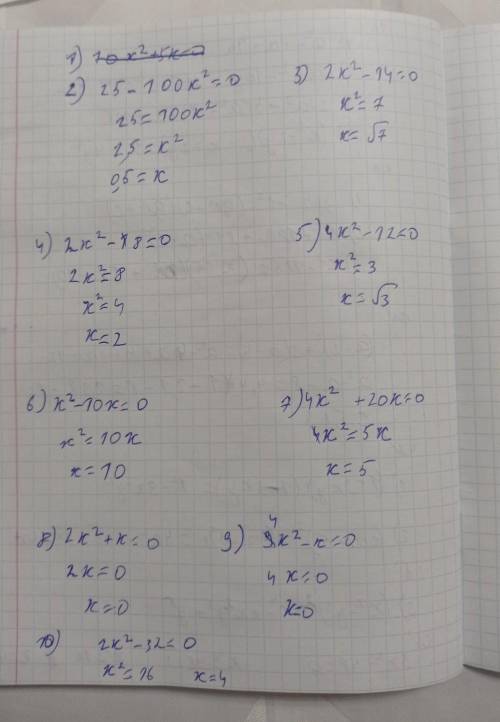 1) 10x²+5x=0
2) 25-100x²=0
25=100x²
2,5=x²
0,5=x
3) 2x²-14=0
x²=7
x=√7
4) 2x²-18=0
2x²=8
x²=4
x=2
5) 4x²-12=0
x²=3
x=√3
6) x²-10x=0
x²=10x
x=10
7) 4x² +20x=0
4x²=5x
x=5
8) 2x²+x=0
2x=0
x=0
9) 4x²-x=0
4x=0
x=0
10) 2x²-32=0
x²=16 x=4